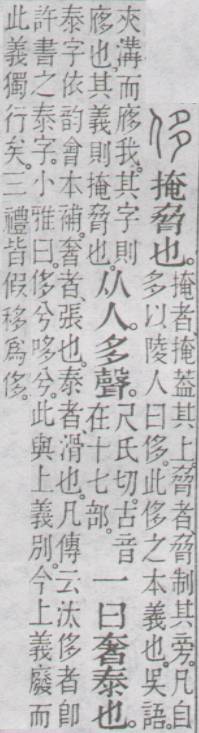 侈 掩脅也。
掩者、掩葢其上。脅者、脅制其旁。凡自
多以陵人曰侈。此侈之本義也。吳語。
夾溝而㢋我。其字則
㢋也。其義則掩脅也。
从人。多聲。
尺氏切。古音
在十七部。
一曰奢泰也。
泰字依韵會本補。奢者、張也。泰者、滑也。凡傳云汰侈者卽
許書之泰字。小雅曰。侈兮哆兮。此與上義別。今上義廢而
此義獨行矣。三
禮皆假移爲侈。